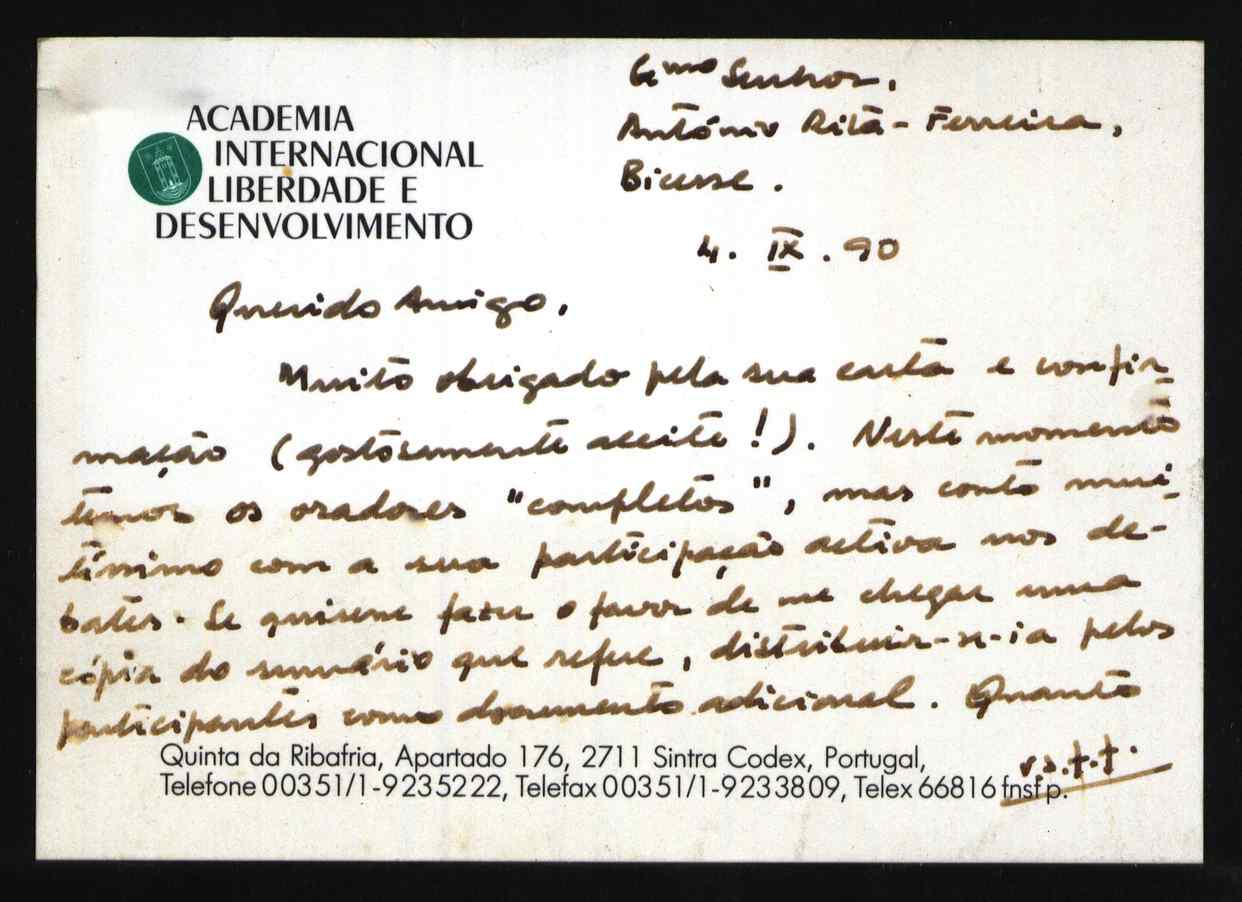 ACADEMIA
INTERNACIONAL
LIBERDADE E
DESENVOLVIMENTO
Exmo Senhor,
António Rita-Ferreira,
Bicesse.
4. IX. 90
Querido Amigo,
Muito obrigado pela sua carta e confir-
mação (gostosamente aceite!). Neste momento
temos os oradores "completos", mas conto mui-
tíssimo com a sua participação activa nos de-
bates. Se quisesse fazer o favor de me chegar uma
cópia do sumário que refere, distribuir-se-ia pelos
participantes como documento adicional. Quanto
v.s.f.f.
Quinta da Ribafria, Apartado 176, 2711 Sintra Codex, Portugal,
Telefone 00351/1-9235222, Telefax 00351/1-9233809, Telex 66816 fnsf p.